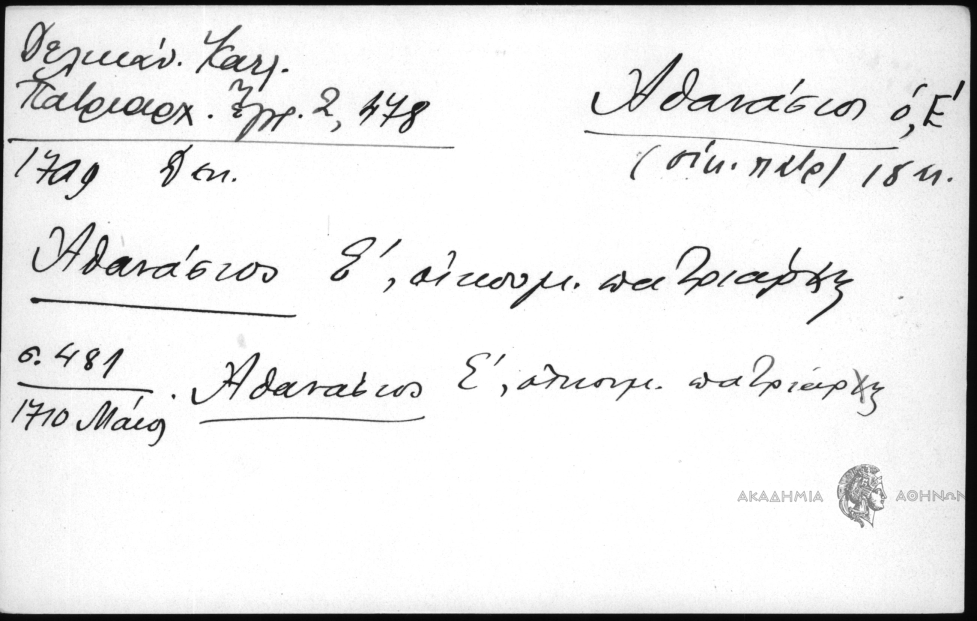 Δελικάν. Καλλ.
Πατριαρχ. Ἔγγρ. 2, 478
1709 Δεκ.
Ἀθανάσιος ὁ, Ε΄
(οἰκ. πατρ) 18 αι.
Ἀθανάσιος Ε΄, οἰκουμ. πατριάρχης
σ. 481
1710 Μάιος
Ἀθανάσιος Ε΄, οἰκουμ. πατριάρχης
ΑΚΑΔΗΜΙΑ ΑΘΗΝΩΝ